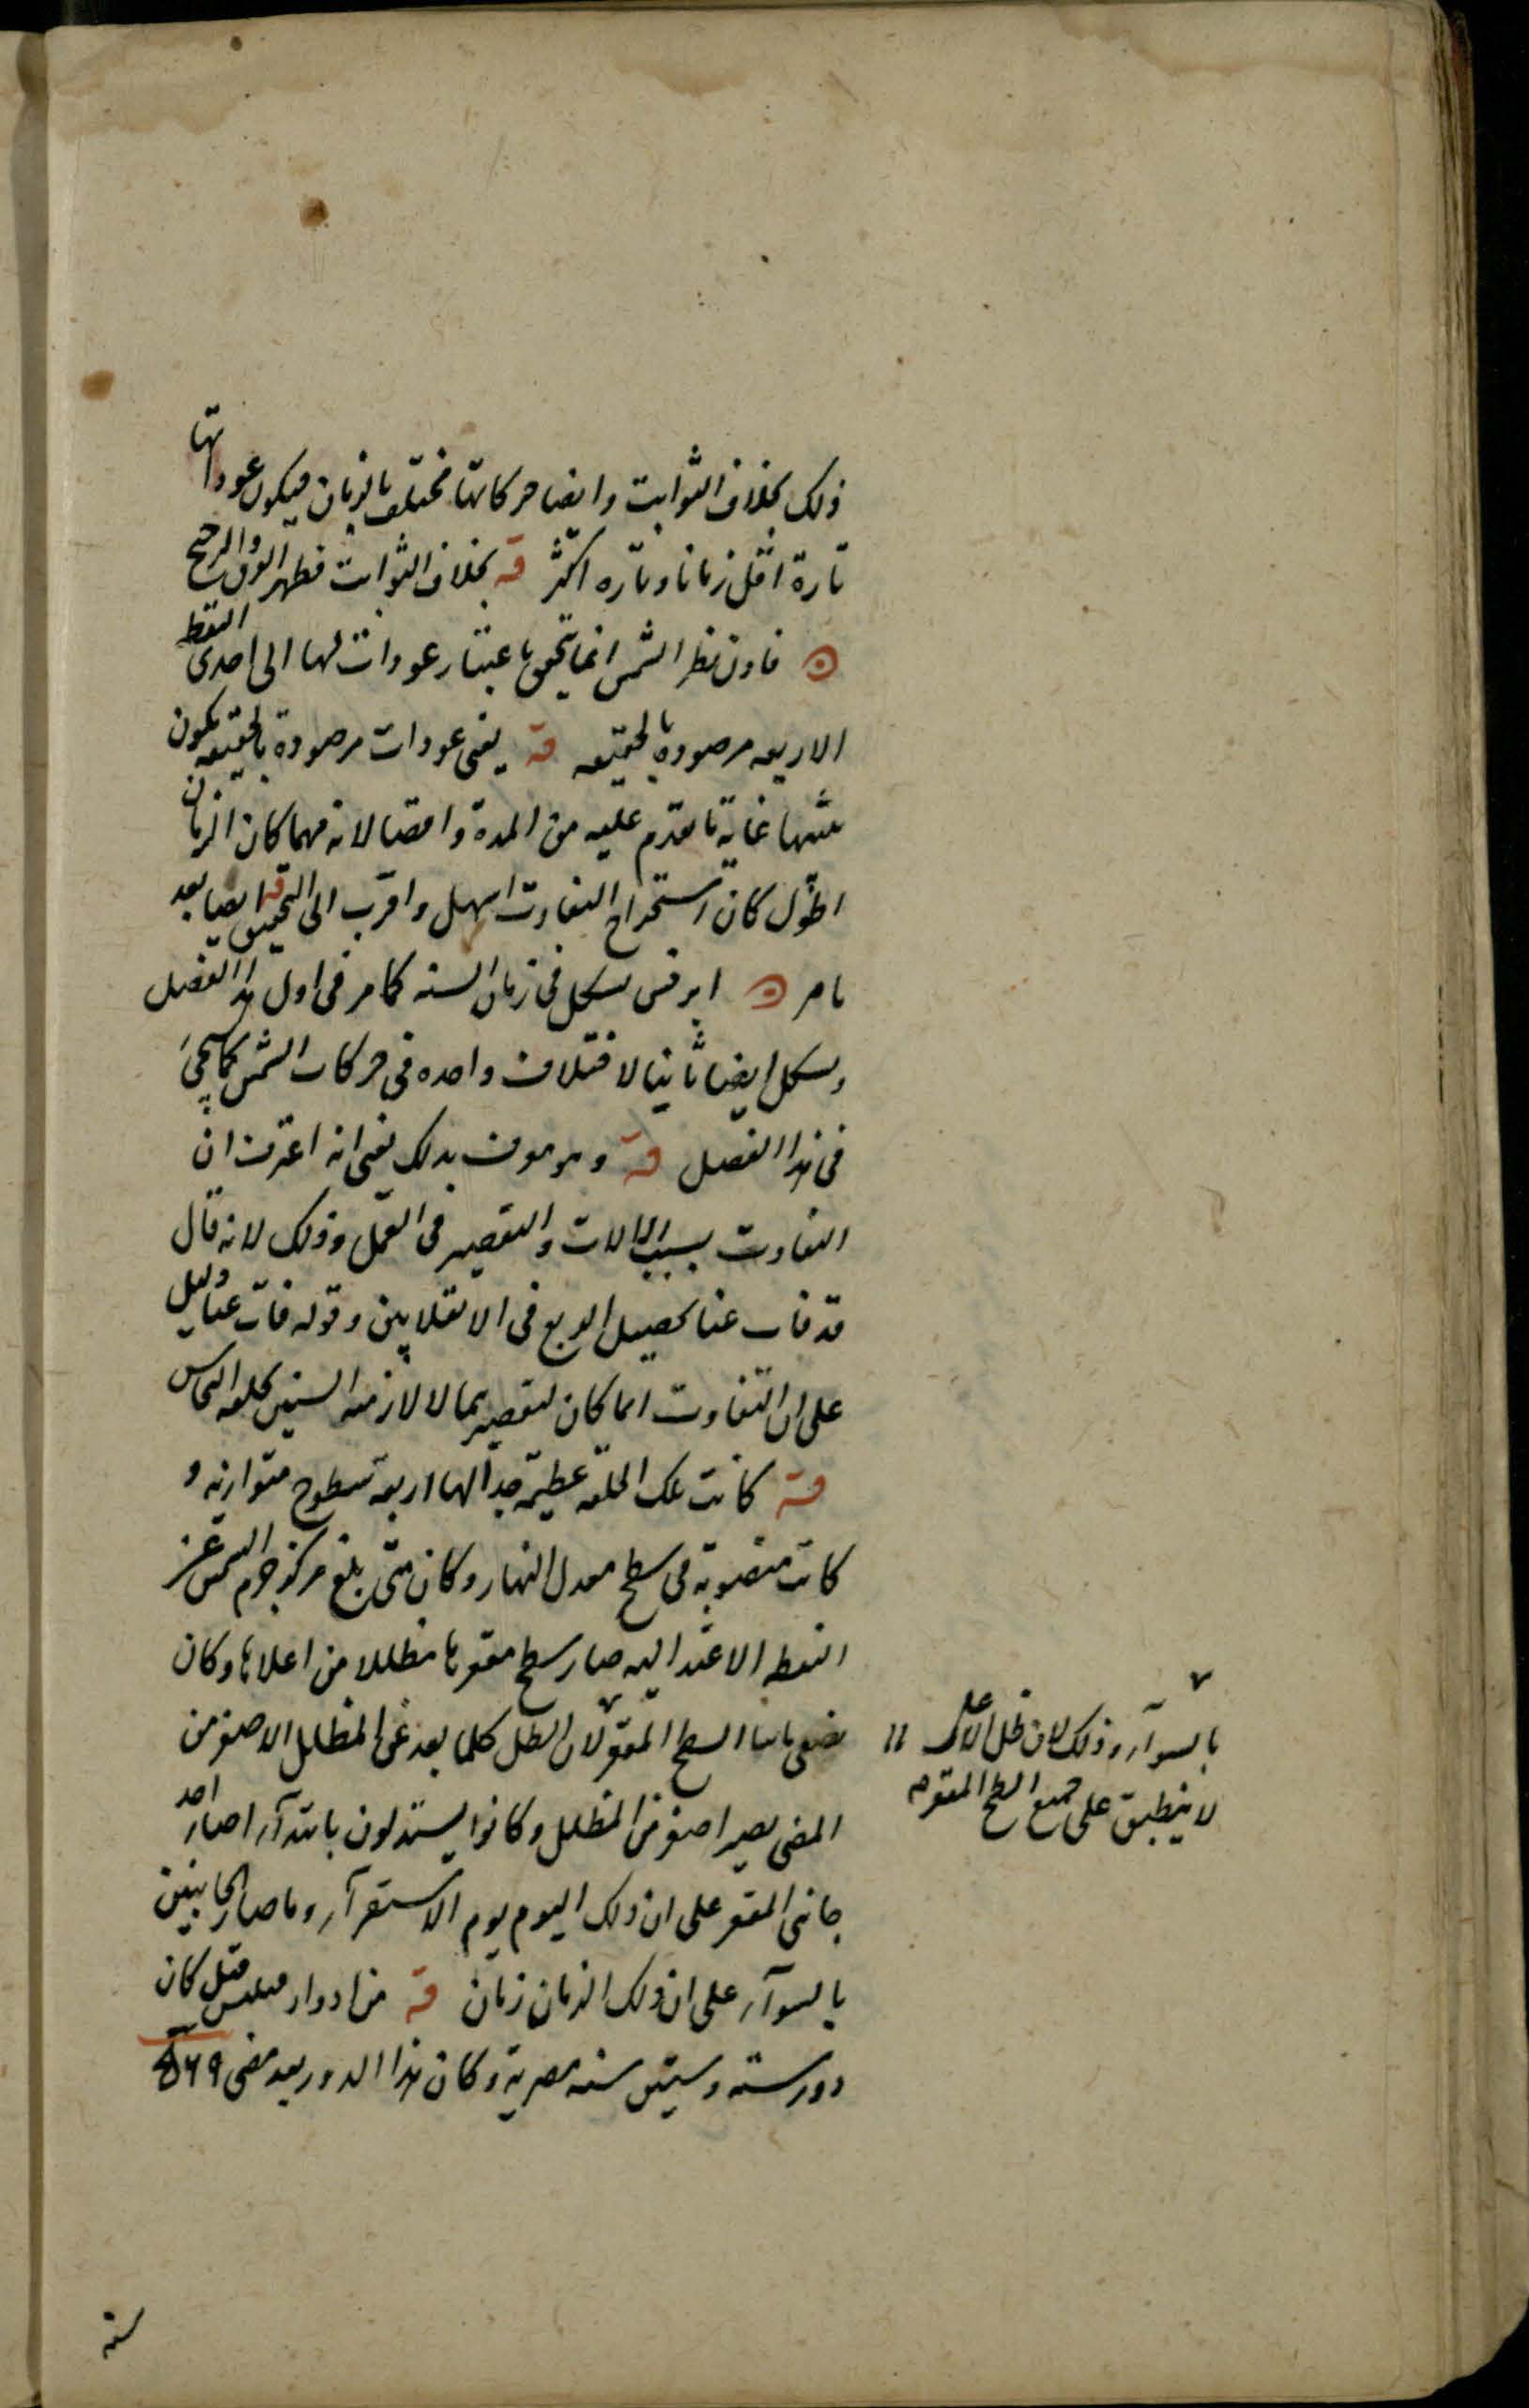 ذلك بخلاف الثوابت وايضا حركاتها تختلف بالزمان فيكون عوداتها
تارة اقل زمانا وتاره اكثر قه بخلاف الثوابت فظهر الفرق والرجح
فاذن نظر الشمس انما يتحقق باعتبار عودات لها الى احدى النقط
الاربعه مرصوده بالحقيقه قه يعنى عودات مرصودة بالحقيقه يكون
بينها غاية ما نقدم عليه من المدة وافضا لانه مهما كان الزمان
اطول كان استخراج التفاوت اسهل واقرب الى التحقيق قه ايضا بعد
ما مر ابرخس يشكل فى زمان السنه كما مر فى اول هذا الفصل
ويشكل ايضا ثانيا لاختلاف واحده فى حركات الشمس كما سيجئ
فى هذا الفصل قه وهو موف بذلك يعنى انه اعترف ان
التفاوت بسبب الالات والتقصير فى العمل وذلك لانه قال
قد فات عنا تحصيل الربع فى الانقلابين وقوله فات عنا دليل
على ان التفاوت انما كان لتقصيرهما لا لازمنه السنين بحلقه النحاس
قه كانت تلك الحلقه عظيمة جدا لها اربعه سطوح متوازنه و
كانت منصوبة فى سطح معدل النهار وكان متى بلغ مركز جرم الشمس عن
النقطه الاعتداليه صار سطح مقعرها مظللا من اعلاها وكان
يضئ باسا السطح المقعر لان الظل كلما بعد عن المظلل الاصغر من
المضى يصير اصغر من المظلل وكانوا يستدلون بابتدآء اضاءه احد
جانبى المقعر على ان ذلك اليوم يوم الاستقرآء وما صار الجانبين
بالسوآء على ان ذلك الزمان زمان قه من ادوار فيلبس قيل كان
دور ستة وستين سنه مصرية وكان هذا الدور بعد مضى ٥٦٩
بالسوآء وذلك لان ظل الاعلى
لا ينطبق على جميع السطح المقعر
سنة